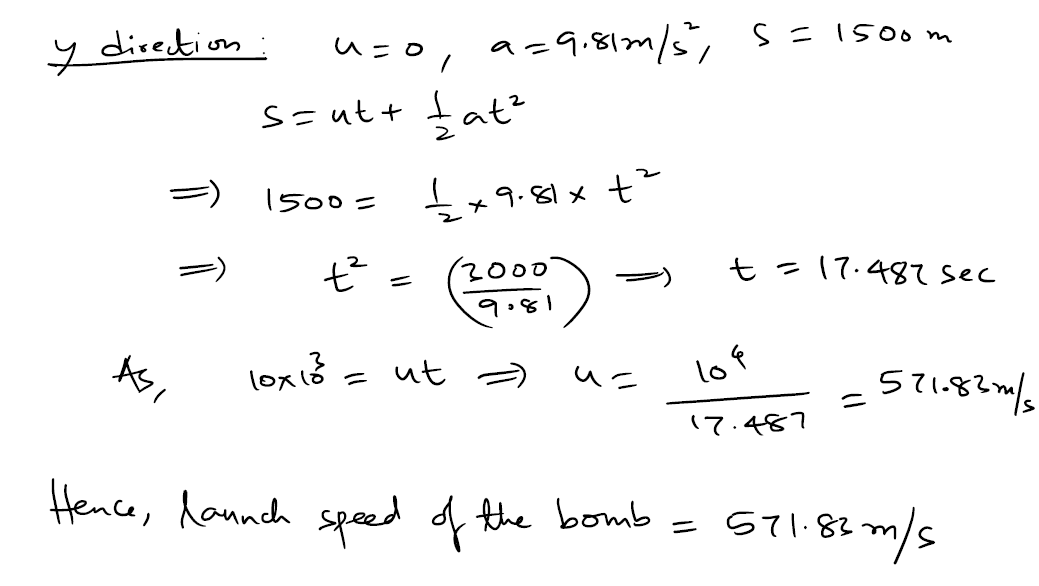 y direction : u = 0, a = 9.81m/s², s = 1500 m
s = ut + 1/2 at²
=> 1500 = 1/2 × 9.81 × t²
=> t² = (3000/9.81) => t = 17.487 sec
As, 10×10³ = ut => u = 10⁴/17.487 = 571.83 m/s
Hence, launch speed of the bomb = 571.83 m/s